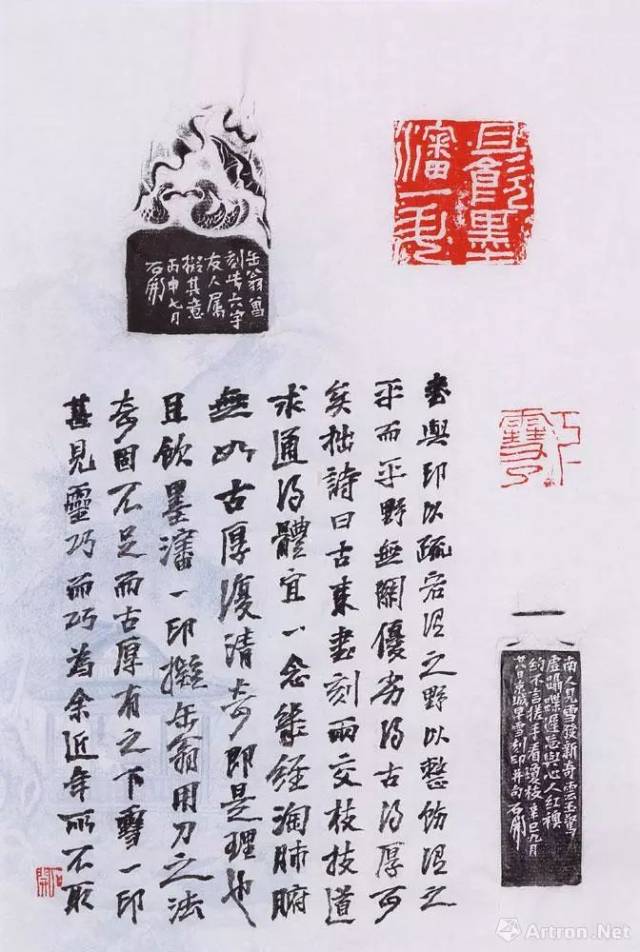 且飲墨
瀋一升
缶翁曾
刻此六字
友人属
擬其意
丙申七月
石開
書與印以疏宕谓之野以整飭谓之
平而平野無關優劣得古得厚可
矣拙詩曰古來書刻兩交枝技道
求通得體宜一念幾經淘肺腑
無如古厚復清奇即是理也
且飲墨瀋一印擬缶翁用刀之法
奇固不足而古厚有之下雪一印
甚見靈巧而巧為余近年所不取
石開
下
雪了
南人見雪發新奇
忘與心人紅襖
約不言搓手看瓊枝辛巳九月
京城早雪刻印并句石開
Artron.Net